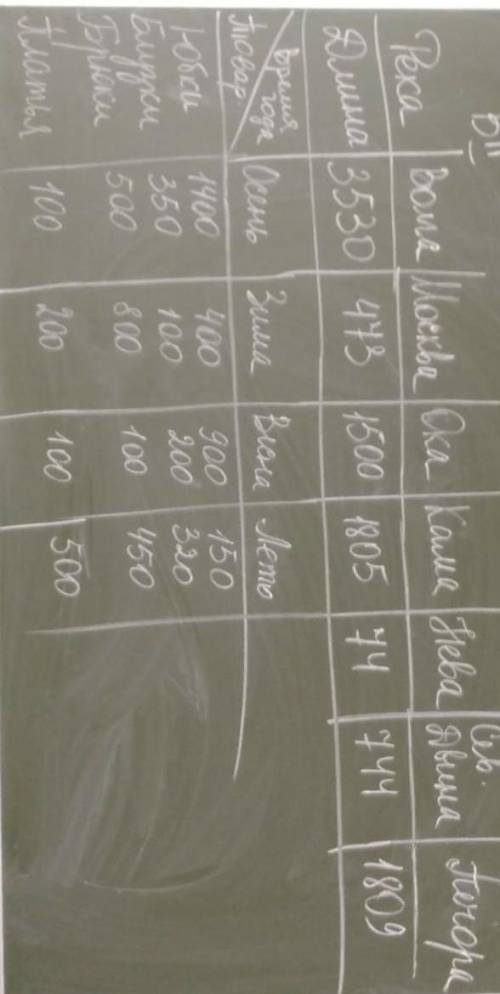 ВII
Река Волга Москва Ока Кама Нева Сев. Двина Печора
Длина 3530 473 1500 1805 74 744 1809
Время года
Товар Осень Зима Весна Лето
Юбки 1400 400 900 150
Блузки 350 100 200 320
Брюки 500 800 100 450
Платья 100 200 100 500